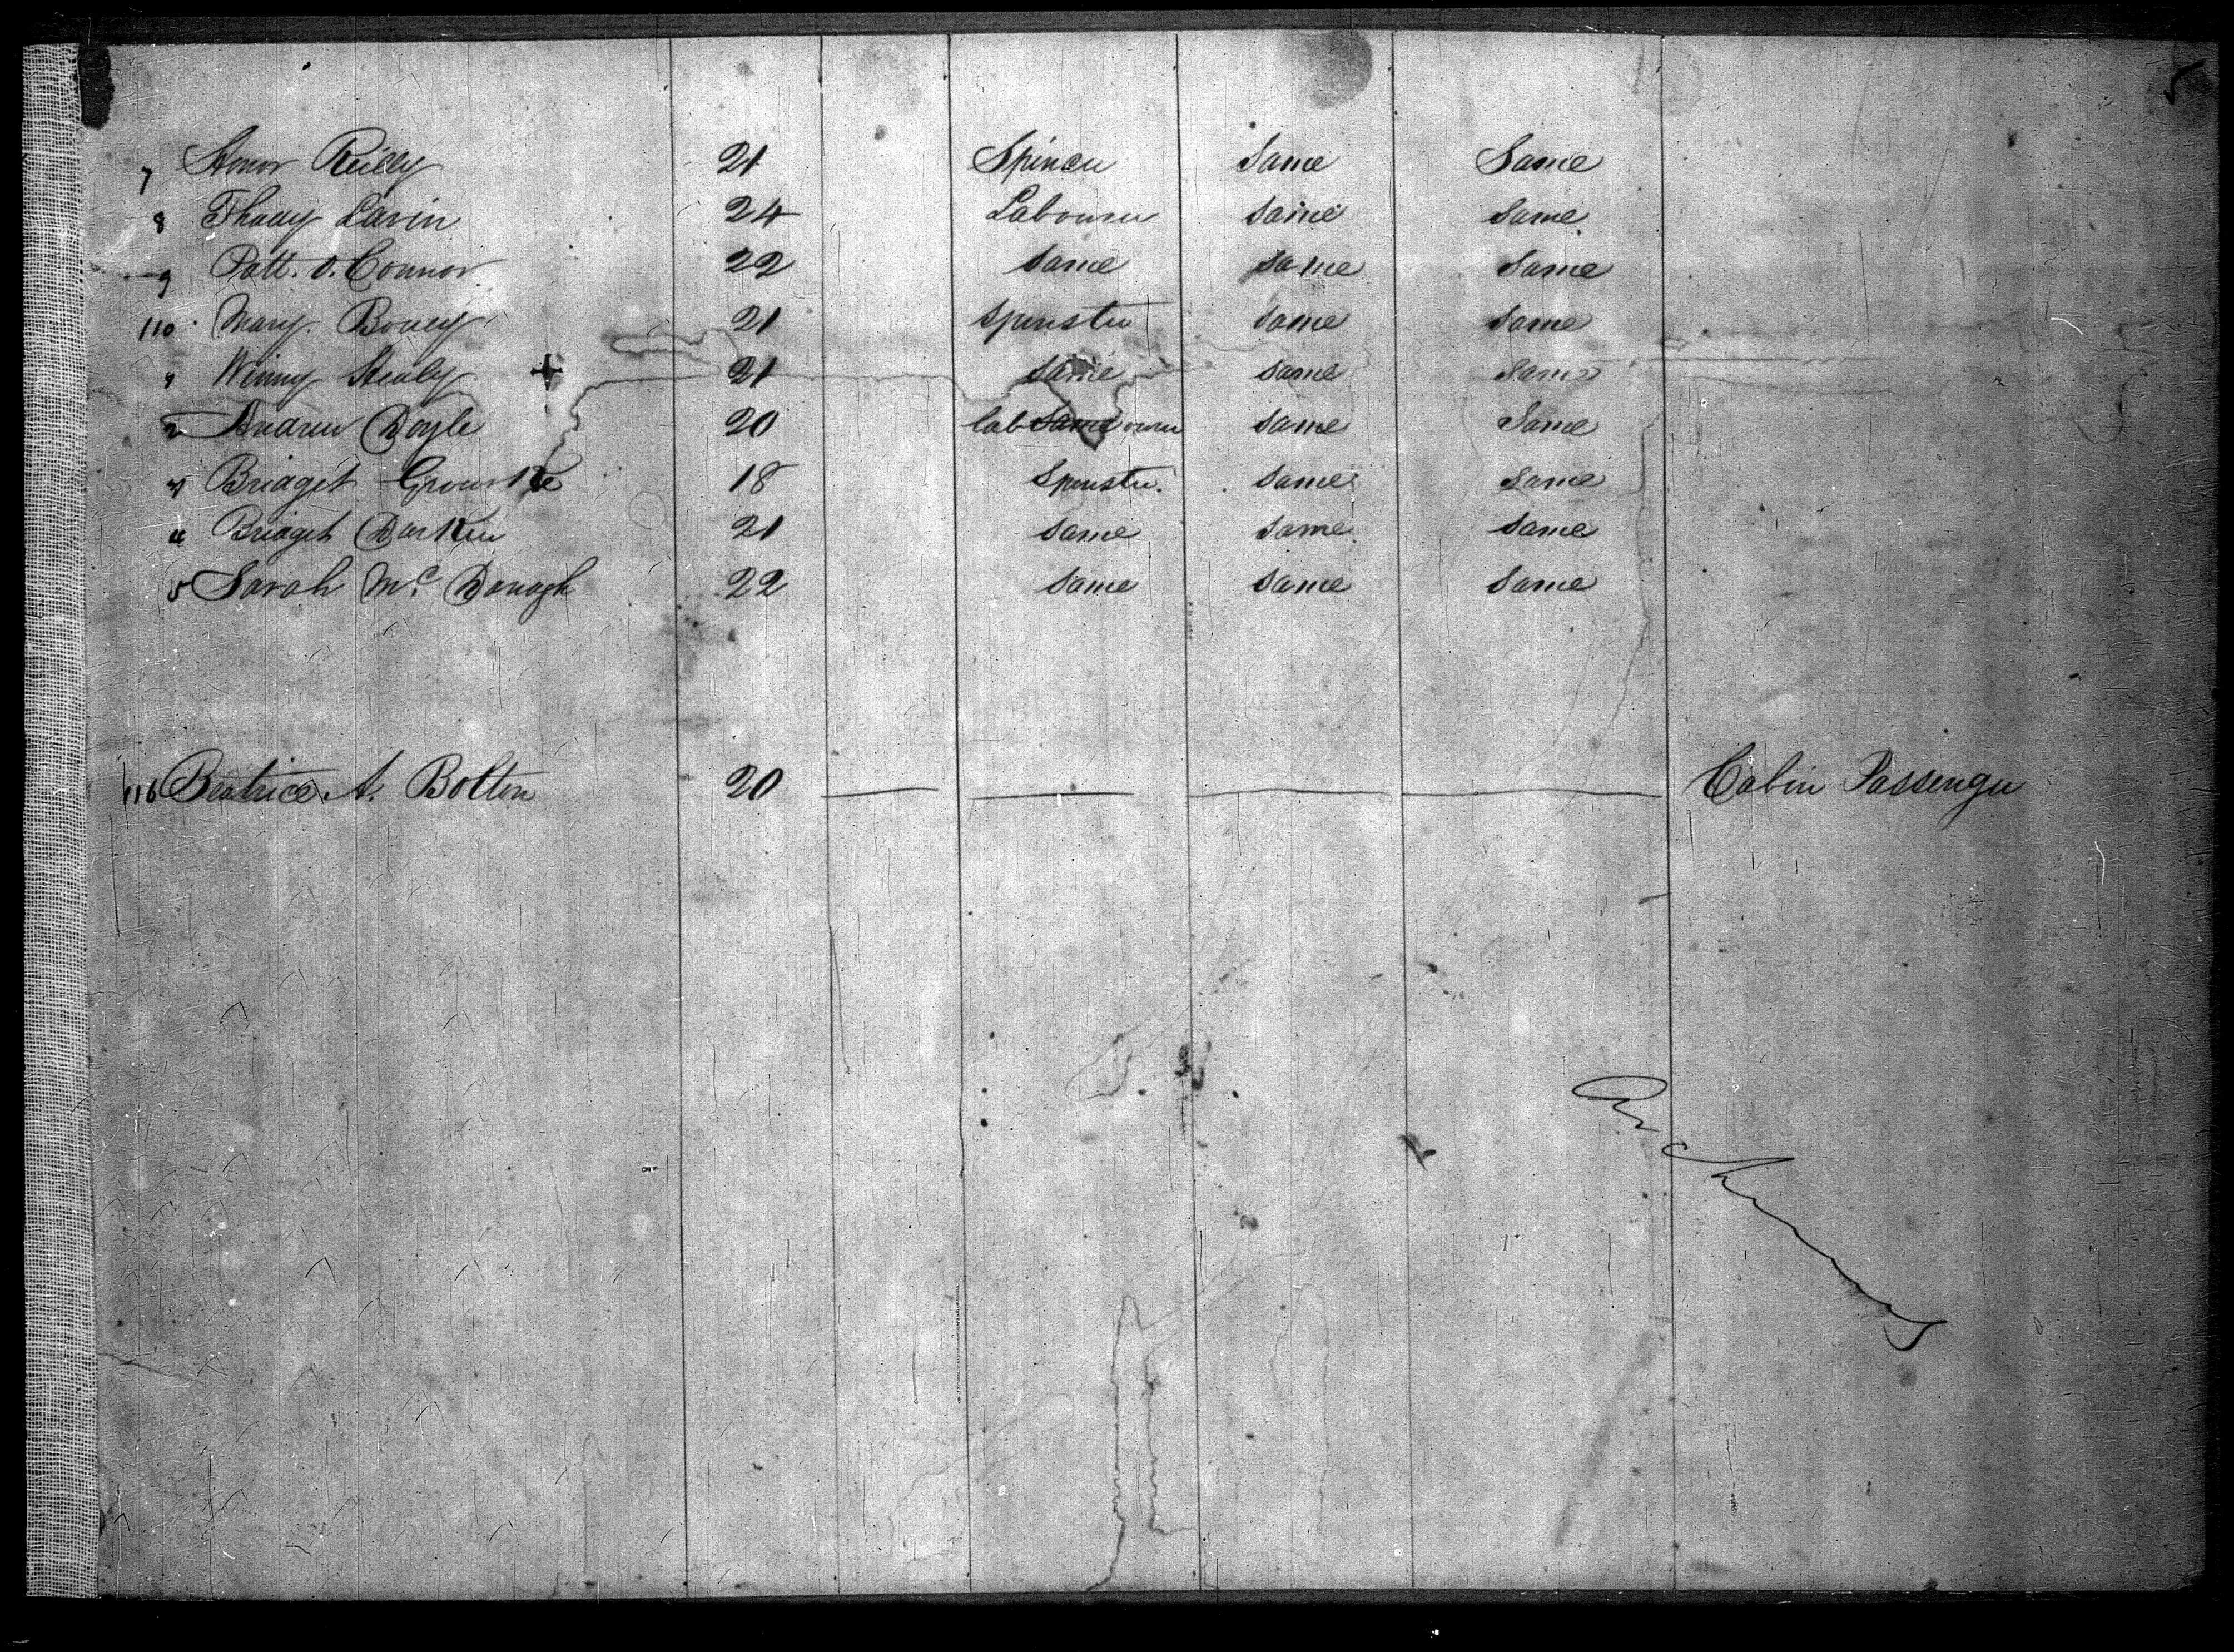 5
7 Honor Reilly 21 Spincer Same Same
8 Thady Lavin 24 Labourer same same
9 Patt. O. Connor 22 same same same
110 Mary Bovey 21 Spinster same same
Winny Healy 21 same same same
2 Andrew Doyle 20 labourer same same
Bridget 18 Spinster. same same
4 Bridget Darkin 21 same same same
5 Sarah Mc. Donagh 22 same same same
116 Beatrice A. Bolton 20 Cabin Passenger